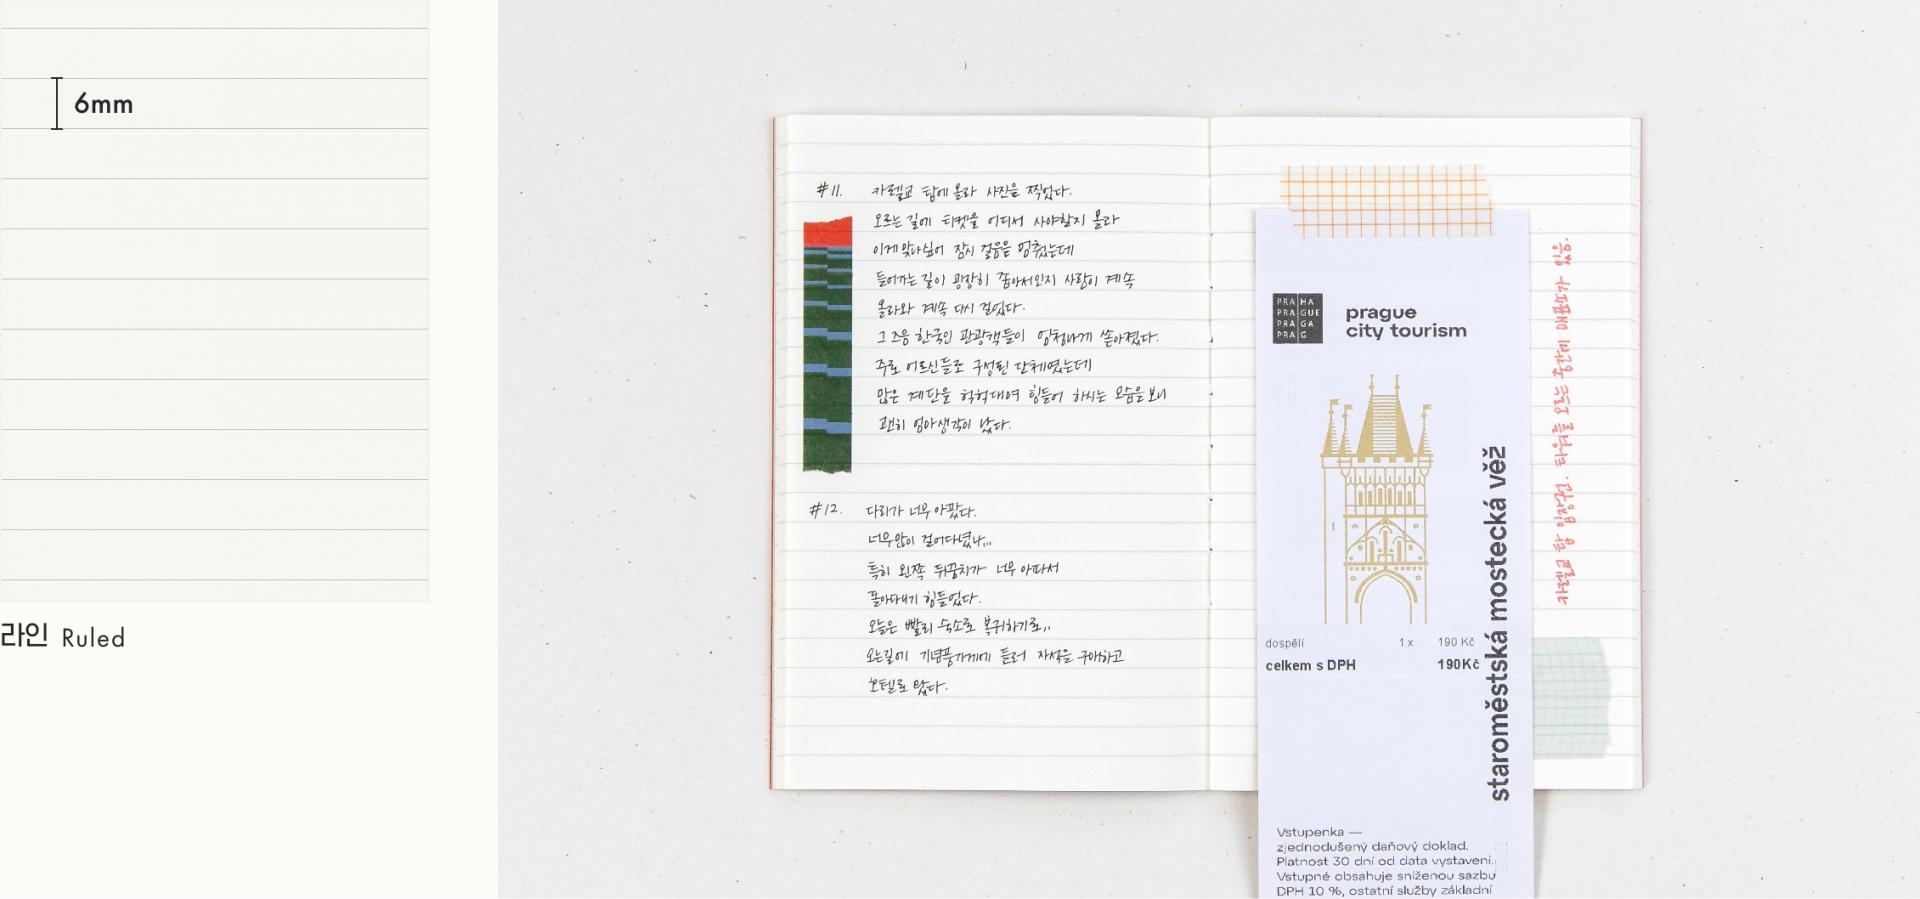 6mm
라인 Ruled
#11. 카렐교 탑에 올라 사진을 찍었다.
오르는 길에 티켓을 어디서 사야할지 몰라
이게 맞나싶어 잠시 걸음을 멈췄는데
들어가는 길이 굉장히 좁아서인지 사람이 계속
올라와 계속 다시 걸었다.
그 즈음 한국인 관광객들이 엄청나게 쏟아졌다.
주로 어르신들로 구성된 단체였는데
많은 계단을 헉헉대며 힘들어 하시는 모습을 보니
괜히 엄마생각이 났다.
#12. 다리가 너무 아팠다.
너무많이 걸어다녔나...
특히 왼쪽 뒤꿈치가 너무 아파서
돌아다니기 힘들었다.
오늘은 빨리 숙소로 복귀하기로..
오는길에 기념품가게에 들러 자석을 구매하고
호텔로 왔다.
PRA HA
PRA GUE
PRA GA
PRA G
prague
city tourism
staroměstská mostecká věž
dospělí 1 x 190 Kč
celkem s DPH 190 Kč
Vstupenka —
zjednodušený daňový doklad.
Platnost 30 dní od data vystavení.
Vstupné obsahuje sníženou sazbu
DPH 10 %, ostatní služby základní